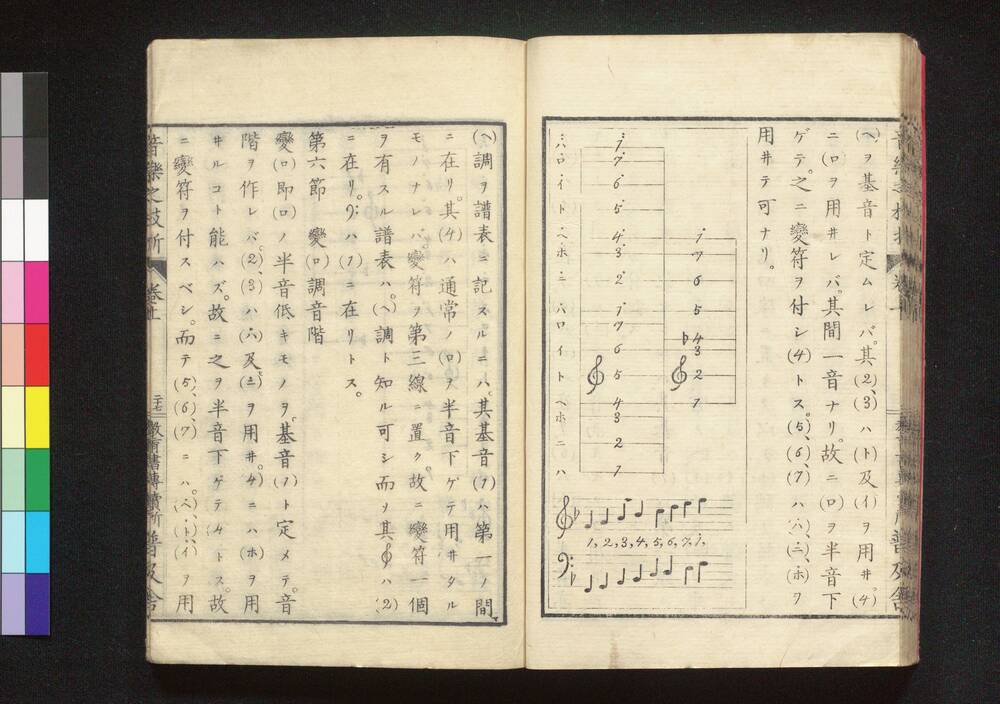 (ヘ)ヲ基音ト定ムレバ。其(2)(3)ハ(ト)及(イ)ヲ用ヰ。(4)
ニ(ロ)ヲ用ヰレバ。其間一音ナリ。故ニ(ロ)ヲ半音下
ゲテ。之ニ變符ヲ付シ(4)トス。(5)、(6)、(7)ハ(ハ)、(ニ)、(ホ)ヲ
用ヰテ可ナリ。
i 7 6 5 ♭4 3 2 1
i 7 6 5 4 3 2 i 7 6 5 4 3 2 1
ハ ロ イ ト ヘ ホ ニ ハ ロ イ ト ヘ ホ ニ ハ
1, 2, 3, 4, 5, 6, 7, i,
(ヘ)調ヲ譜表ニ記スルニハ。其基音(1)ハ第一ノ間
ニ在リ。其(4)ハ通常ノ(ロ)ヲ半音下ゲテ用ヰタル
モノナレバ。變符ヲ第三線ニ置ク。故ニ變符一個
ヲ有スル譜表ハ。(ヘ)調ト知ル可シ而ソ其𝄞ハ(2)
ニ在リ。𝄢ハ(1)ニ在リトス。
第六節 變(ロ)調音階
變(ロ)即(ロ)ノ半音低キモノヲ。基音(1)ト定メテ。音
階ヲ作レバ。(2)、(3)ハ(ハ)及(ニ)ヲ用ヰ。4ニハ(ホ)ヲ用
ヰルコト能ハズ。故ニ之ヲ半音下ゲテ(4)トス。故
ニ變符ヲ付スベシ。而テ(5)、(6)、(7)ニハ。(ヘ)、(ト)、(イ)ヲ用
音樂之枝折 卷上 二十七 普及舍